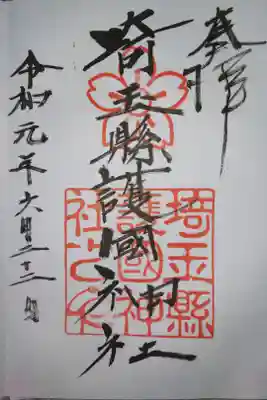 奉拝
埼玉縣護國神社
埼玉縣
護國神
社之印
令和元年六月二十二日